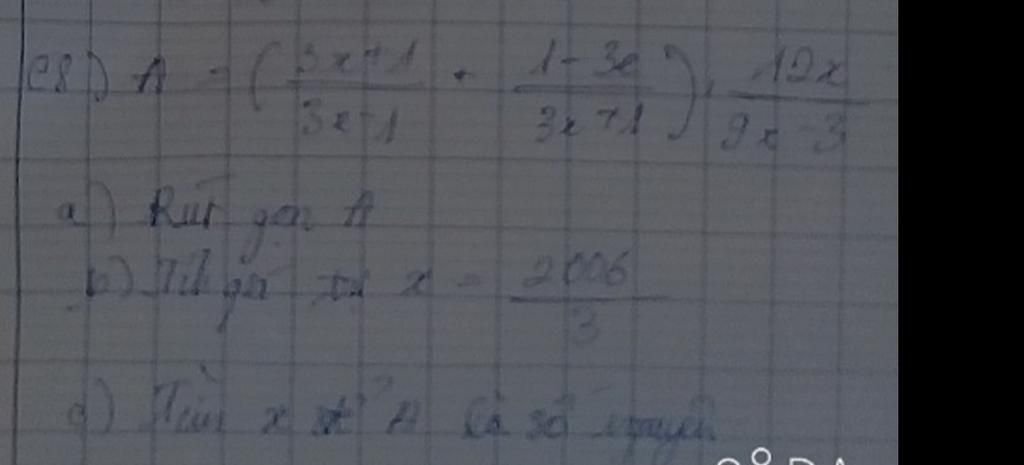 C8) A = ( \frac{3x+1}{3x-1} + \frac{1-3x}{3x+1} ) : \frac{12x}{9x-3}
a) Rút gọn A
b) Tính giá trị x = \frac{2006}{3}
c) Tìm x để A là số nguyên